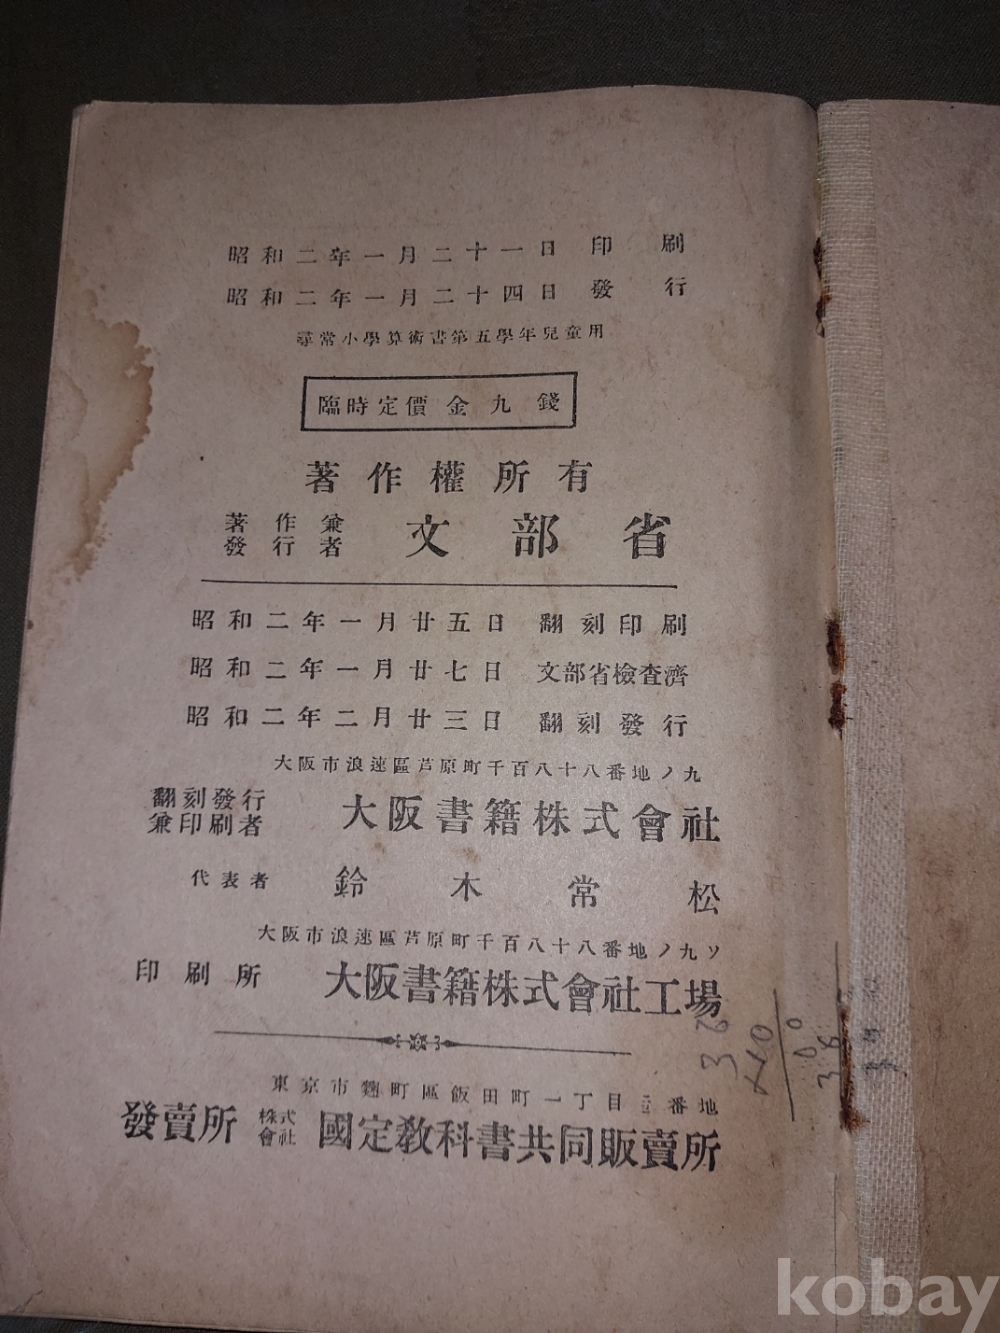 昭和二年一月二十一日 印刷
昭和二年一月二十四日 發行
尋常小學算術書第五學年兒童用
臨時定價金九錢
著作權所有
著作兼
發行者 文部省
昭和二年一月廿五日 翻刻印刷
昭和二年一月廿七日 文部省檢査濟
昭和二年二月廿三日 翻刻發行
大阪市浪速區芦原町千百八十八番地ノ九
翻刻發行
兼印刷者 大阪書籍株式會社
代表者 鈴木常松
大阪市浪速區芦原町千百八十八番地ノ九ソ
印刷所 大阪書籍株式會社工場
東京市麴町區飯田町一丁目 番地
發賣所 株式會社 國定敎科書共同販賣所
kobay